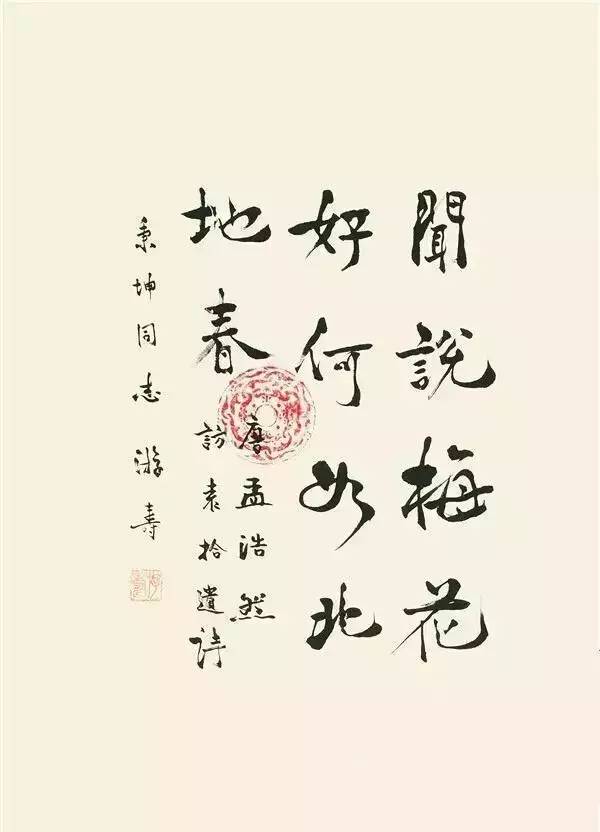 聞説梅花
好何如北
地春
唐孟浩然
訪袁拾遺詩
秉坤同志游壽